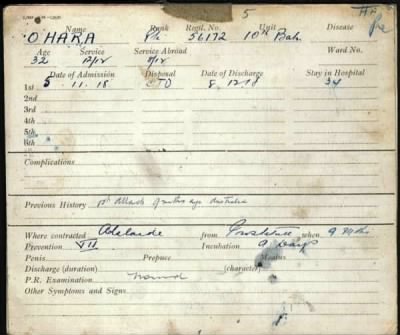 5
Name Rank Regtl. No. Unit Disease
O'HARA Pte 56172 10th Bn.
Age Service Service Abroad Ward No.
32 8/12
Date of Admission Disposal Date of Discharge Stay in Hospital
1st 5 11.18 CTD 8 12 18 34
2nd
3rd
4th
5th
6th
Complications
Previous History 1st Attack 9 mths ago Australia
Where contracted Adelaide from Prostitute when 9 Mths
Prevention VII Incubation 9 Days
Penis Prepuce Meatus
Discharge (duration) (character)
P.R. Examination Normal
Other Symptoms and Signs